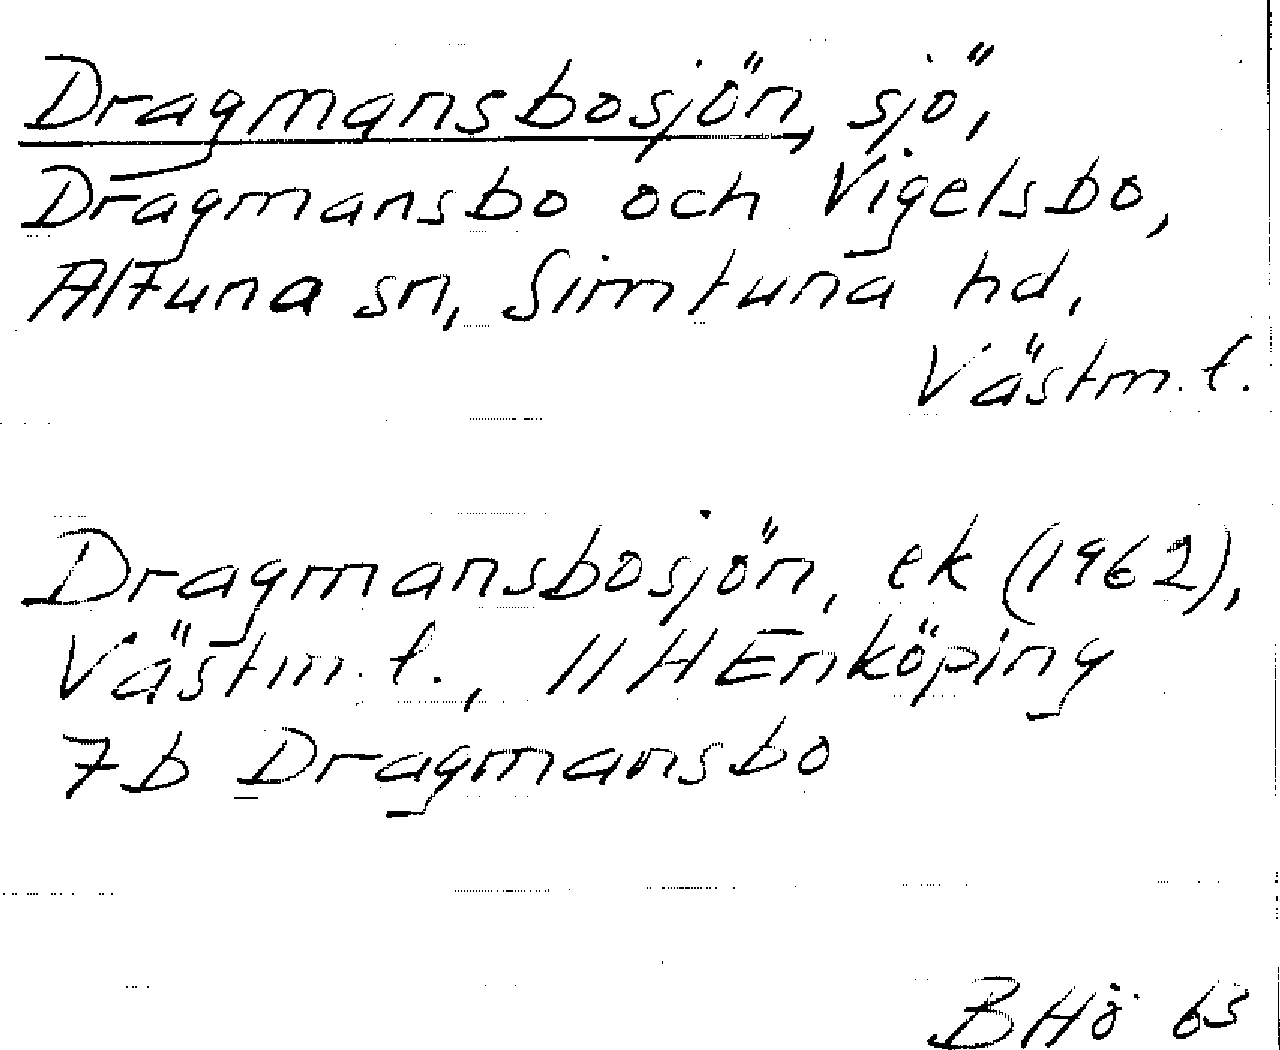 Dragmansbosjön, sjö,
Dragmansbo och Vigelsbo,
Altuna sn, Simtuna hd,
Västm. l.
Dragmansbosjön, ek (1962),
Västm. l., 11 H Enköping
7b Dragmansbo
BHö 63